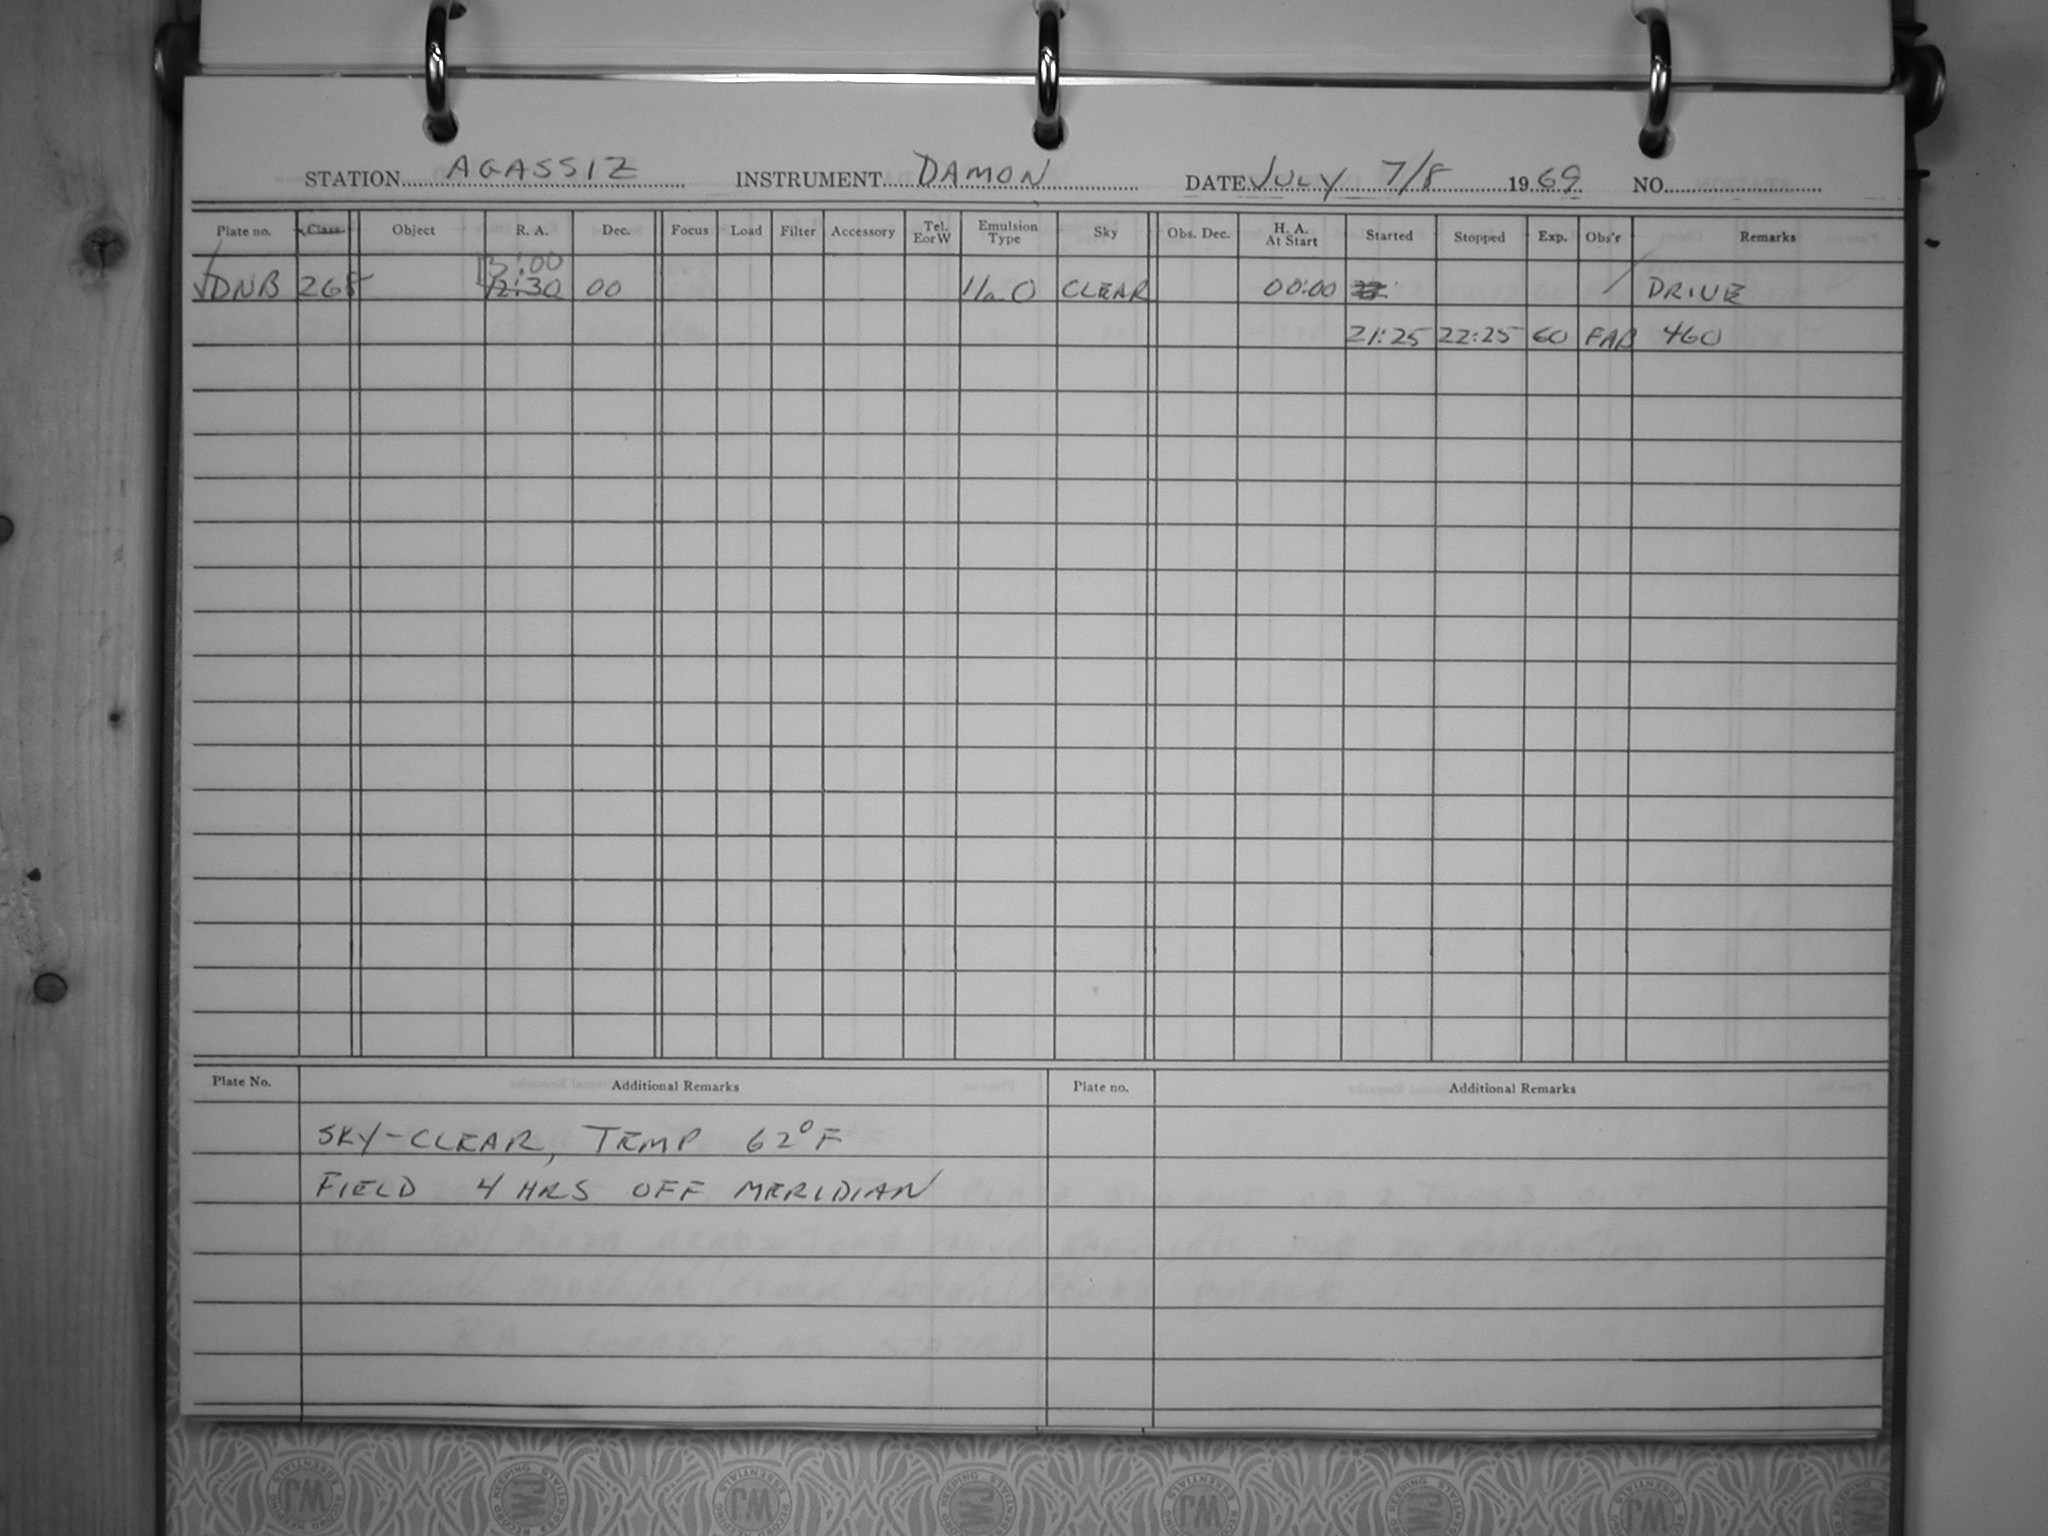 STATION AGASSIZ INSTRUMENT DAMON DATE JULY 7/8 1969 NO.
Plate no. Class Object R. A. Dec. Focus Load Filter Accessory Tel. E or W Emulsion Type Sky Obs. Dec. H. A. At Start Started Stopped Exp. Obs'r Remarks
:00
DNB 265 12:30 00 IIaO CLEAR 00:00 DRIVE
21:25 22:25 60 FAB 460
Plate No. Additional Remarks Plate no. Additional Remarks
SKY-CLEAR, TEMP 62°F
FIELD 4 HRS OFF MERIDIAN
WJ RECORD KEEPING ESSENTIALS